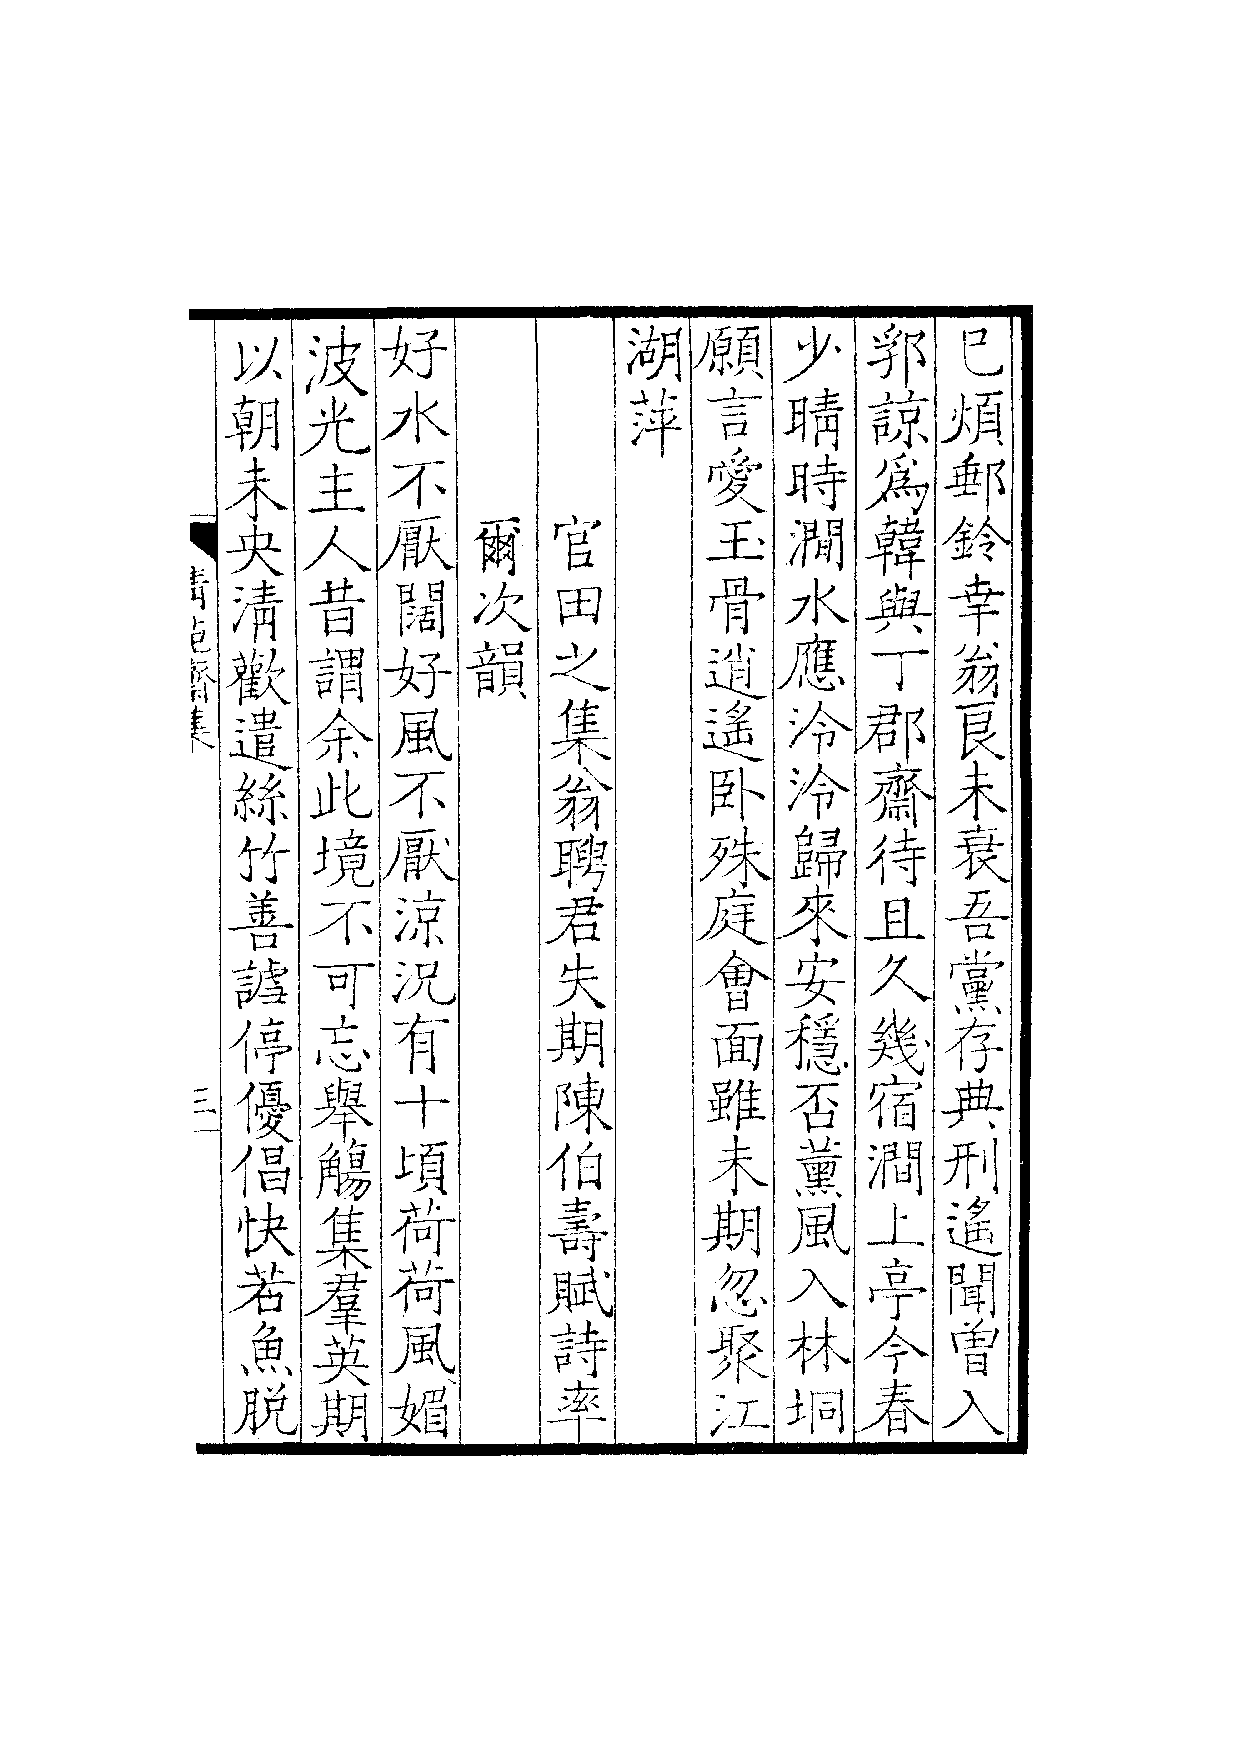 已煩郵鈴幸翁艮未衰吾黨存典刑遙聞曽入
郛諒爲韓與丁郡齋待且久幾宿澗上亭今春
少晴時澗水應泠泠歸來安穩否薰風入林坰
願言愛玉骨逍遙卧殊庭會面雖未期忽聚江
湖萍
官田之集翁聘君失期陳伯壽賦詩率
爾次韻
好水不厭闊好風不厭涼況有十頃荷荷風媚
波光主人昔謂余此境不可忘舉觴集羣英期
以朝未央清歡遣絲竹善謔停優倡快若魚脱
清苑齋集
三